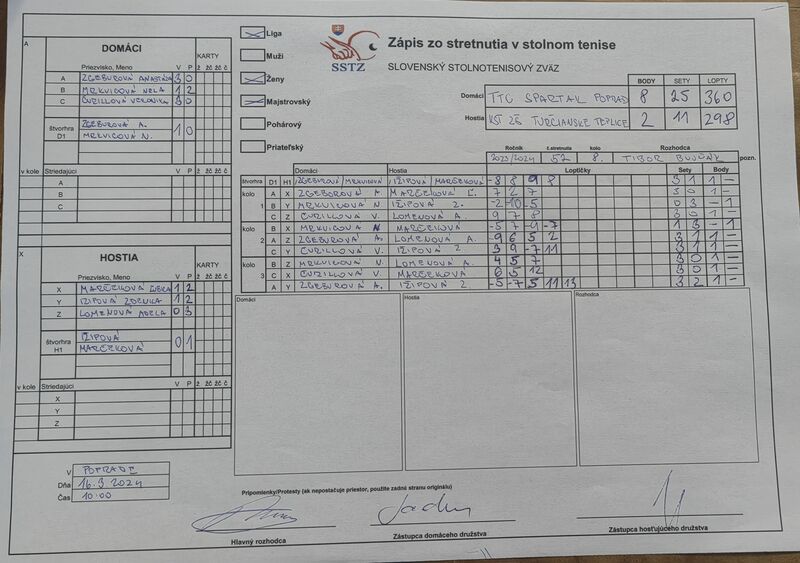 Zápis zo stretnutia v stolnom tenise
SLOVENSKÝ STOLNOTENISOVÝ ZVÄZ
SSTZ
Liga
Muži
Ženy
Majstrovský
Pohárový
Priateľský
BODY SETY LOPTY
Domáci TTC SPARTAK POPRAD 8 25 360
Hostia KST ZŠ TURČIANSKE TEPLICE 2 11 298
Ročník č.stretnutia kolo Rozhodca
2023/2024 52 8. TIBOR
pozn.
A
DOMÁCI
KARTY
Priezvisko, Meno V P ž žč žč č
A ZGEBUROVÁ 3 0
B MRKVICOVÁ NELA 1 2
C ČURILLOVÁ VERONIKA 3 0
štvorhra D1
ZGEBUROVÁ A. 1 0
MRKVICOVÁ N.
v kole Striedajúci V P ž žč žč č
A
B
C
X
HOSTIA
KARTY
Priezvisko, Meno V P ž žč žč č
X MARČEKOVÁ 1 2
Y IŽIPOVÁ ZDENKA 1 2
Z LOMENOVÁ ADELA 0 3
štvorhra H1
IŽIPOVÁ 0 1
MARČEKOVÁ
v kole Striedajúci V P ž žč žč č
X
Y
Z
V POPRADE
Dňa 16.3.2024
Čas 10:00
Domáci Hostia Loptičky Sety Body
štvorhra D1 H1 ZGEBUROVÁ/MRKVICOVÁ IŽIPOVÁ/MARČEKOVÁ -8 8 9 8 3 1 1 -
kolo 1
A X ZGEBUROVÁ A. MARČEKOVÁ Ľ. 7 2 7 3 0 1 -
B Y MRKVICOVÁ N IŽIPOVÁ Z. -2 -10 -5 0 3 - 1
C Z ČURILLOVÁ V. LOMENOVÁ A. 9 7 8 3 0 1 -
kolo 2
B X MRKVICOVÁ N MARČEKOVÁ -5 7 -9 -7 1 3 - 1
A Z ZGEBUROVÁ A. LOMENOVÁ A. -9 6 5 2 3 1 1 -
C Y ČURILLOVÁ V. IŽIPOVÁ Z 3 9 -7 11 3 1 1 -
kolo 3
B Z MRKVICOVÁ N. LOMENOVÁ A. 4 5 7 3 0 1 -
C X ČURILLOVÁ V. MARČEKOVÁ 6 5 12 3 0 1 -
A Y ZGEBUROVÁ A. IŽIPOVÁ Z -5 -7 5 11 13 3 2 1 -
Domáci
Hostia
Rozhodca
Pripomienky/Protesty (ak nepostačuje priestor, použite zadnú stranu originálu)
Hlavný rozhodca
Zástupca domáceho družstva
Zástupca hosťujúceho družstva